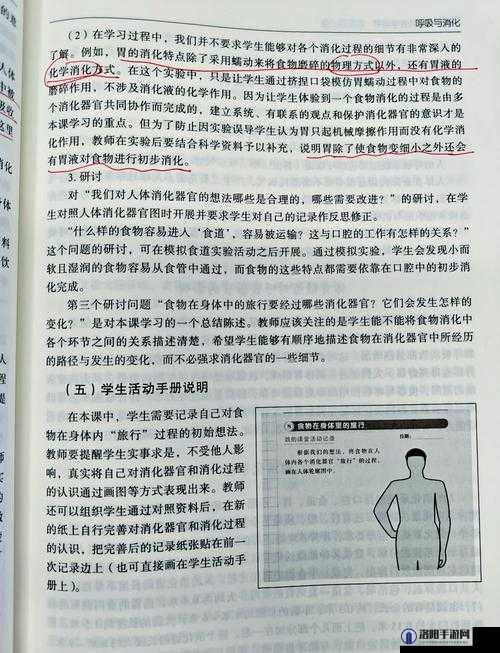 呼吸与消化
（2）在学习过程中，我们并不要求学生能够对各个消化过程的细节有非常深入的
了解。例如，胃的消化特点除了采用蠕动来将食物磨碎的物理方式以外，还有胃液的
化学消化方式。在这个实验中，只是让学生通过挤捏口袋模仿胃蠕动过程中对食物的
磨碎作用，不涉及消化液的化学作用。因为让学生体验到一个食物消化的过程是由多
个消化器官共同协作而完成的，建立系统、有联系的观点和保护消化器官的意识才是
本课学习的重点。但为了防止因实验误导学生认为胃只起机械摩擦作用而没有化学消
化作用，教师在实验后要结合科学资料予以补充，说明胃除了使食物变细小之外还会
有胃液对食物进行初步消化。
3. 研讨
对“我们对人体消化器官的想法哪些是合理的，哪些需要改进？”的研讨，在学
生对照人体消化器官图时开展并要求学生对自己的记录作反思修正。
“什么样的食物容易进入‘食道’，容易被运输？这与口腔的工作有怎样的关系？”
这个问题的研讨，可在模拟食道实验活动之后开展。通过模拟实验，学生会发现小而
软且湿润的食物容易从食管中通过，而食物的这些特点都需要依靠在口腔中的初步消
化完成。
第三个研讨问题“食物在身体中的旅行要经过哪些消化器官？它们会发生怎样的
变化？”是对本课学习的一个总结陈述。教师应该关注的是学生能不能将食物消化中
各个环节之间的关系描述清楚，希望学生能够有顺序地描述食物在消化器官中所经历
的路径与发生的变化，而不必强求消化器官的一些细节。
（五）学生活动手册说明
在本课中，学生需要记录自己对食
物在身体内“旅行”过程的初始想法。
教师要提醒学生实事求是，不受他人影
响，真实将自己对消化器官和消化过程
的认识通过画图等方式表现出来。教师
还可以组织学生通过对照资料后，在新
的纸上自行完善对消化器官和消化过程
的认识，把完善后的记录纸张贴在前一
次记录边上（也可直接画在学生活动手
册上）。
食物在身体里的旅行
我的课堂活动记录
日期：
根据我们的想法，将食物在人
体内各个消化器官“旅行”的过程，
画在人体轮廓图中。
洛阳手游网